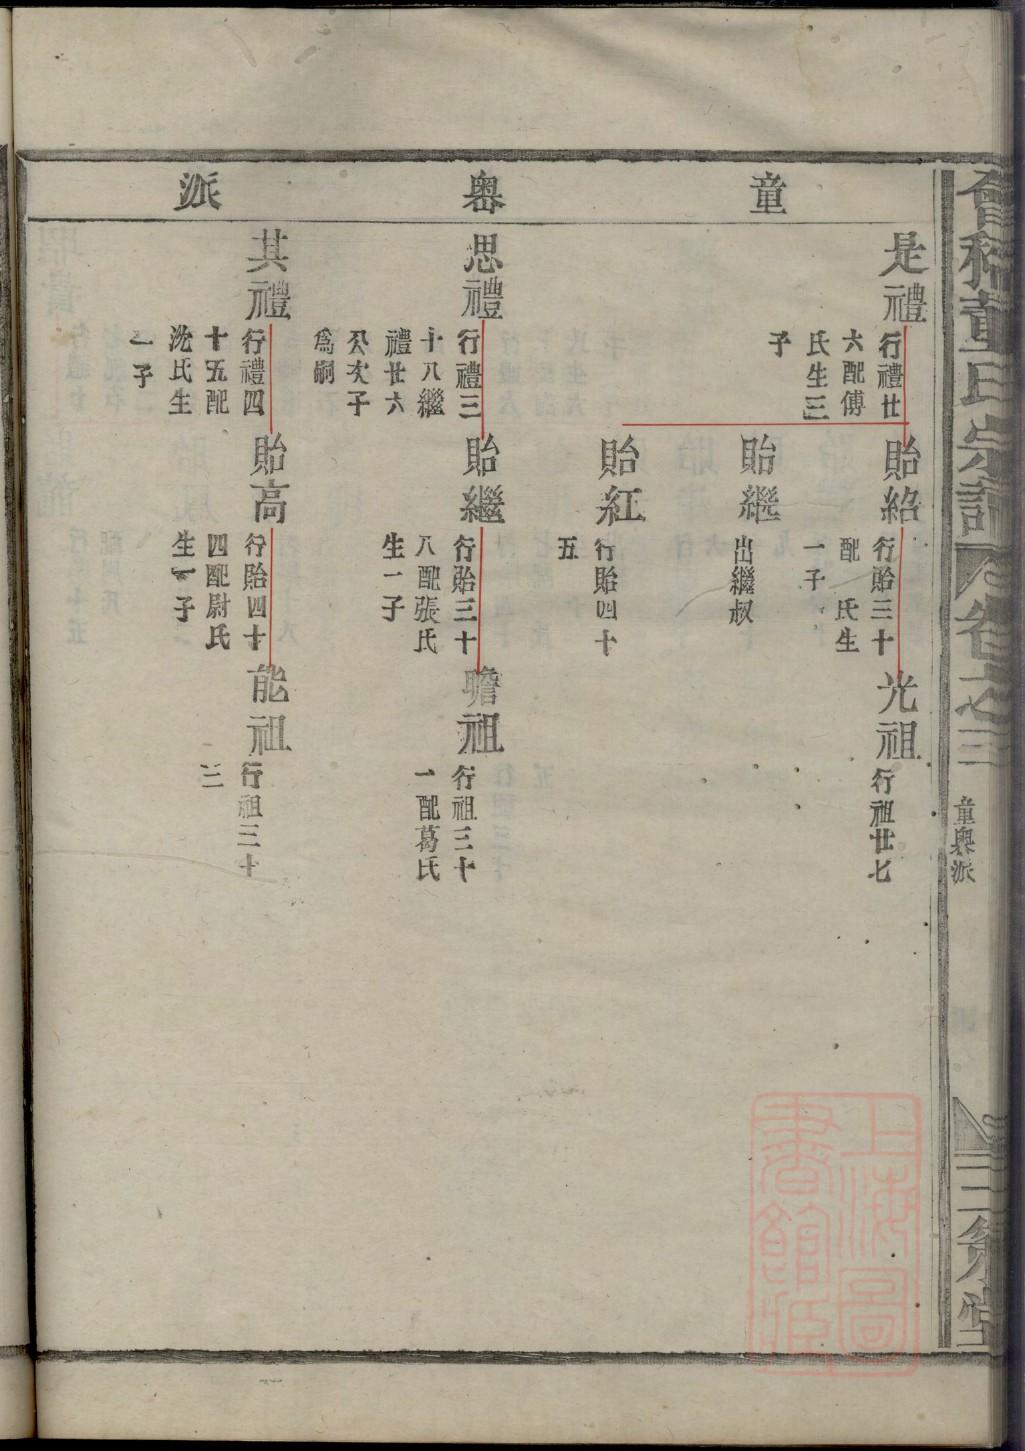 童
嶴
派
是禮
行禮廿
六配傅
氏生三
子
貽絡
行貽三十
配 氏生
一子
光祖
行祖廿七
貽繼
出繼叔
貽紅
行貽四十
五
思禮
行禮三
十八繼
禮廿六
公次子
爲嗣
貽繼
行貽三十
八配張氏
生一子
瞻祖
行祖三十
一配葛氏
其禮
行禮四
十五配
沈氏生
一子
貽高
行貽四十
四配尉氏
生一子
能祖
行祖三十
三
會稽董氏宗譜
卷之三
童嶴派
三祭堂
上海圖
書館藏